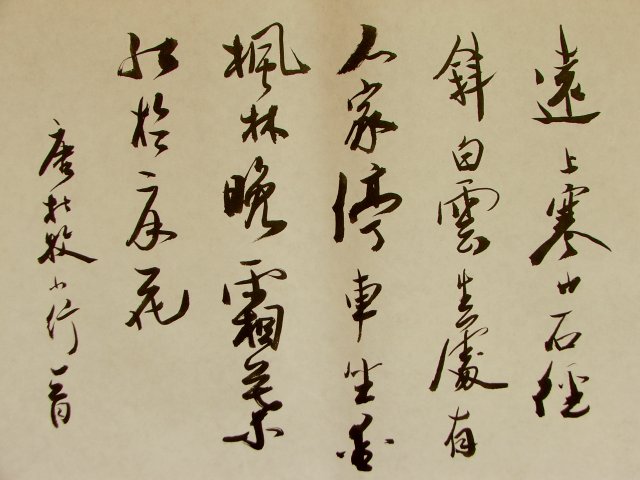 遠上寒山石徑
斜白雲生處有
人家停車坐愛
楓林晚霜葉
紅於二月花
唐杜牧山行一首